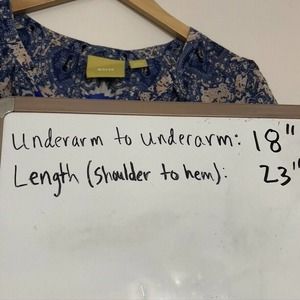 Underarm to Underarm: 18"
Length (Shoulder to hem): 23"